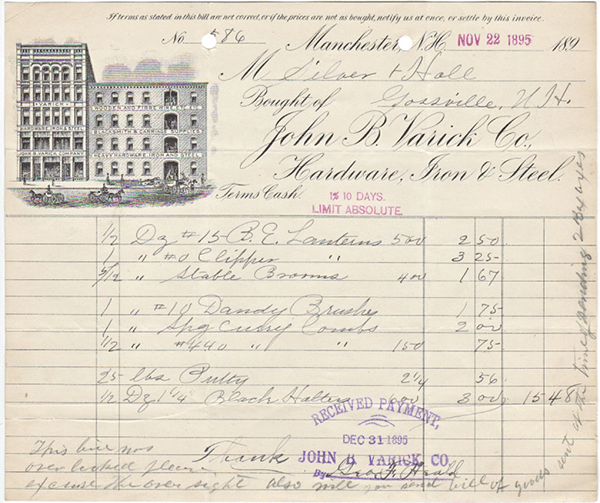 If terms as stated in this bill are not correct, or if the prices are not as bought, notify us at once, or settle by this invoice.
No 586 Manchester, N.H. NOV 22 1895 189
M Silver & Hall
Bought of Gossville, N.H.
John B. Varick Co.,
Hardware, Iron & Steel.
Terms Cash 1% 10 DAYS.
LIMIT ABSOLUTE.
VARICK
HARDWARE IRON & STEEL
JOHN B. VARICK COMPANY
WOODEN AND FIBRE WARE
BLACKSMITH & CARRIAGE SUPPLIES
HEAVY HARDWARE IRON AND STEEL
1/2 Dz #15 B. E. Lanterns 500 2 50
1 " #0 Clipper " 3 25
5/12 " Stable Brooms 400 1 67
1 " #10 Dandy Brushes 1 75
1 " Spg Curry Combs 2 00
1/2 " #490 " " 150 75
25 lbs Putty 2 1/4 56
1/2 Dz 1 1/4 Black Halters 600 3 00 15 48
RECEIVED PAYMENT,
DEC 31 1895
JOHN B. VARICK CO.
By Geo. F. Heald
Thanks
This bill was
over looked please
excuse the over sight also will you send bill of goods
sent at the time of sending 2 Ox